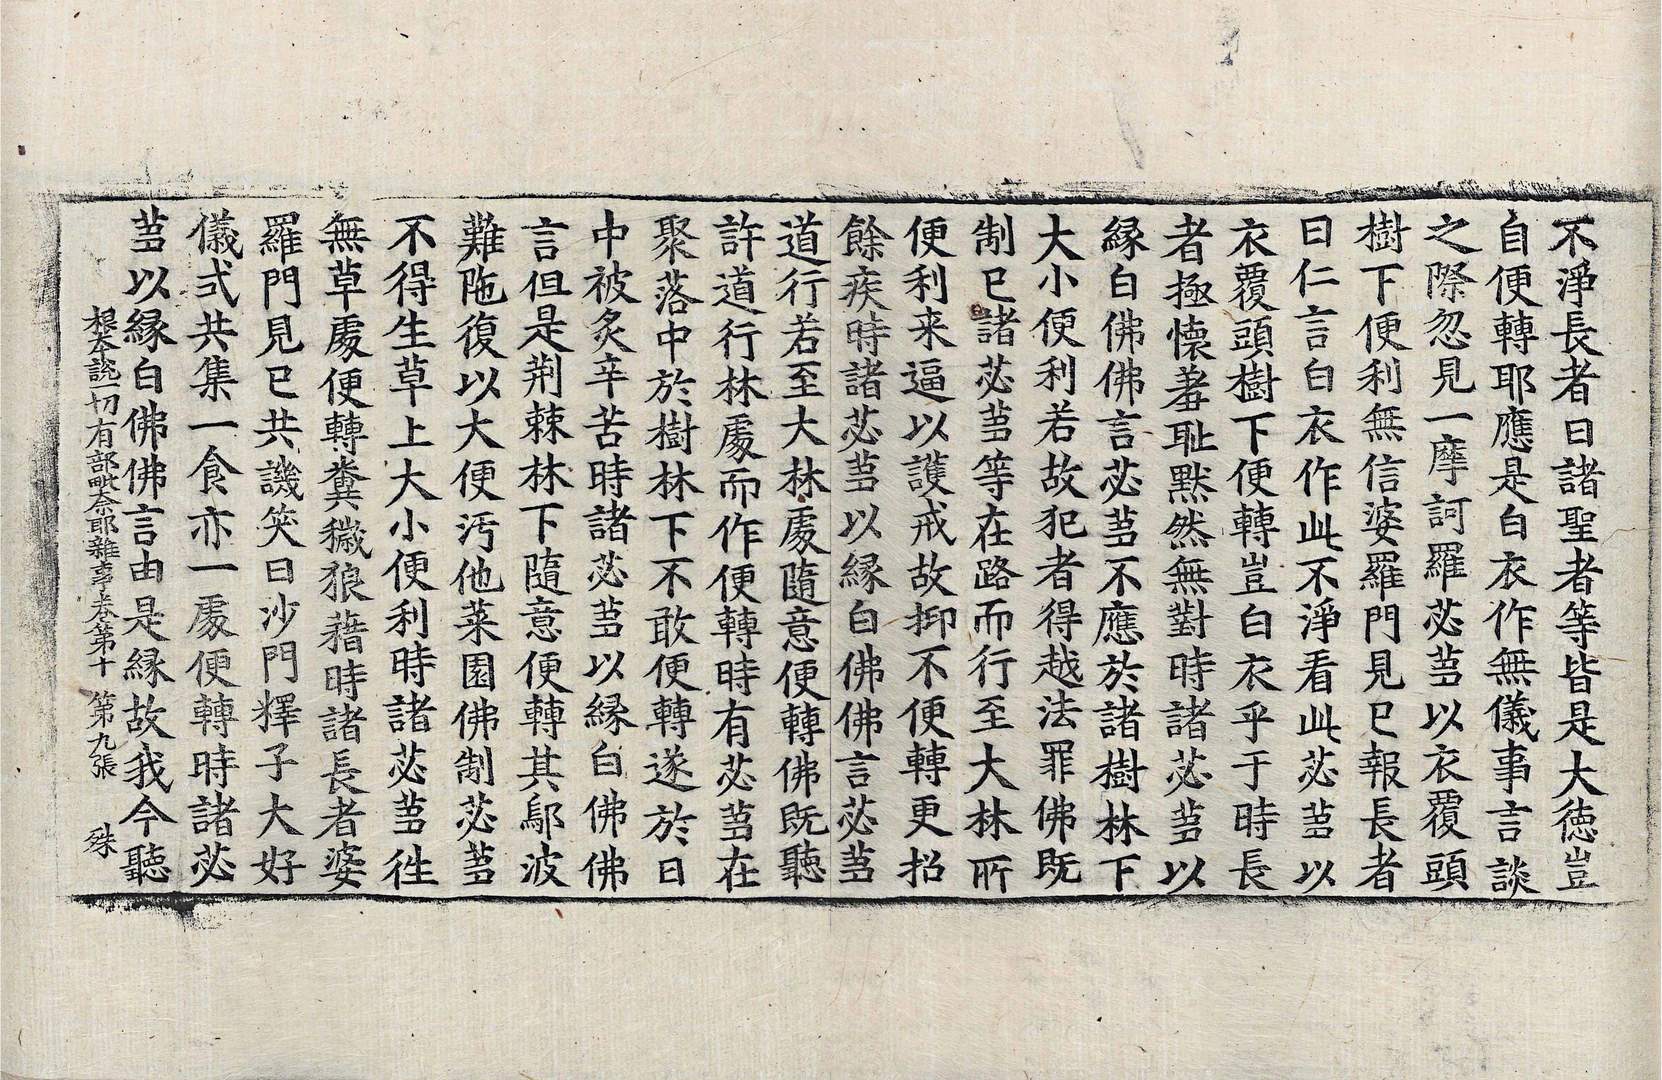 不淨長者曰諸聖者等皆是大徳豈
自便轉耶應是白衣作無儀事言談
之際忽見一摩訶羅苾芻以衣覆頭
樹下便利無信婆羅門見已報長者
曰仁言白衣作此不淨看此苾芻以
衣覆頭樹下便轉豈白衣乎于時長
者極懷羞耻黙然無對時諸苾芻以
縁白佛佛言苾芻不應於諸樹林下
大小便利若故犯者得越法罪佛既
制已諸苾芻等在路而行至大林所
便利来逼以護戒故抑不便轉更招
餘疾時諸苾芻以縁白佛佛言苾芻
道行若至大林處隨意便轉佛既聽
許道行林處而作便轉時有苾芻在
聚落中於樹林下不敢便轉遂於日
中被炙辛苦時諸苾芻以縁白佛佛
言但是荆棘林下隨意便轉其鄔波
難陁復以大便汚他菜園佛制苾芻
不得生草上大小便利時諸苾芻徃
無草處便轉糞穢狼藉時諸長者婆
羅門見已共譏笑曰沙門釋子大好
儀式共集一食亦一處便轉時諸苾
芻以縁白佛佛言由是縁故我今聽
根本說一切有部毗奈耶雜事卷第十 第九張 殊